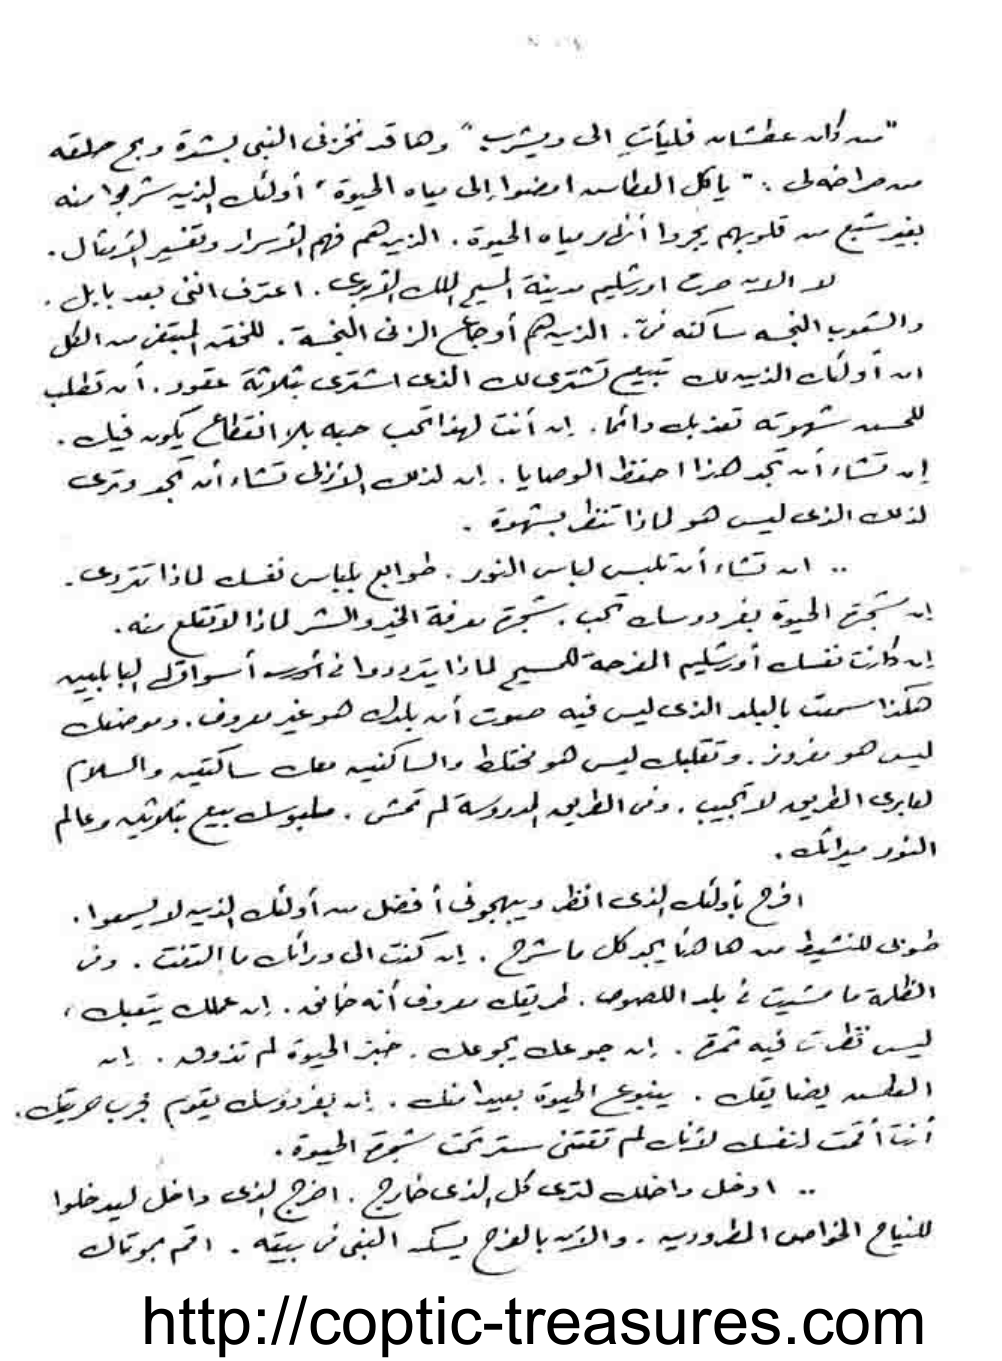 "من كان عطشان فليأتِ إلى ويشرب" وها قد نخزنى النبى بشدة وبح حلقه
من صراخه لى: "يا كل العطاش امضوا إلى مياه الحيوة" أولئك الذين شربوا منه
بغير شبع من قلوبهم يجروا أنهار مياه الحيوة. الذين هم فهم الأسرار وتفسير الأمثال.
لو الآن صرت اورشليم مدينة المسيح الملك القريرى. اعترف اننى بعد بابل.
والشعوب النجسه ساكنه فىّ. الذين هم أوجاع الزنى النجسة. للختن المبتغى من الكل
ان أولئك الذين لك تبيع تشترى لك الذى اشترى بثلاثة عقود. أن تطلب
للحسن شهوته تعذبك دائما. إن أنت لهذا تحب حبه بلا انقطاع يكون فيك.
إن تشاء أن تجد هذا احفظ الوصايا. إن لذلك الأزلى تشاء أن تجد وترى
لذلك الذى ليس هو لماذا تنظر بشهوة.
.. ان تشاء أن تلبس لباس النور. طوابع بلباس نفسك لماذا تتردى.
إن شجرة الحيوة بفردوسك تحب. شجرة معرفة الخير والشر لماذا لا تقلع منه.
إن كانت نفسك أورشليم المفرحة للمسيح لماذا يترددوا فى أسواق البابليين
هكذا سمعت بالبلد الذى ليس فيه صوت أن بلدك هو غير معروف. وموضعك
ليس هو مفروز. وتقلبك ليس هو مختلط والساكنين معك ساكتين والسلام
لعابرى الطريق لا تجيب. وفى الطريق المدروسة لم تمش. ملبوسك بيع بثلاثين وعالم
النور ميراثك.
افرح بأولئك الذى انظر ويبهجونى أفضل من أولئك الذين لا يسمعوا.
طوبى للنشيط من ها هنا يجد كل ما شرح. إن كنت الى ورائك ما التفت. وفى
الظلمة ما مشيت فى بلد اللصوص. طريقك معروف أنه خافى. إن عملك يتعبك،
ليس نظرت فيه ثمرة. إن جوعك يجوعك. خبز الحيوة لم تذوق. إن
العطش يضايقك. ينبوع الحيوة بعيدا منك. إن بفردوسك يقوم قرب حريتك.
أنت أقمت لنفسك لأنك لم تقتنى ستر تحت شجرة الحيوة.
.. ادخل داخلك لترى كل الذى خارج. اخرج الذى داخل ليدخلوا
للنياح الخواص المطرودين. والآن بالفرح يسكن النبى فى بيته. اقم بموتاك
http://coptic-treasures.com